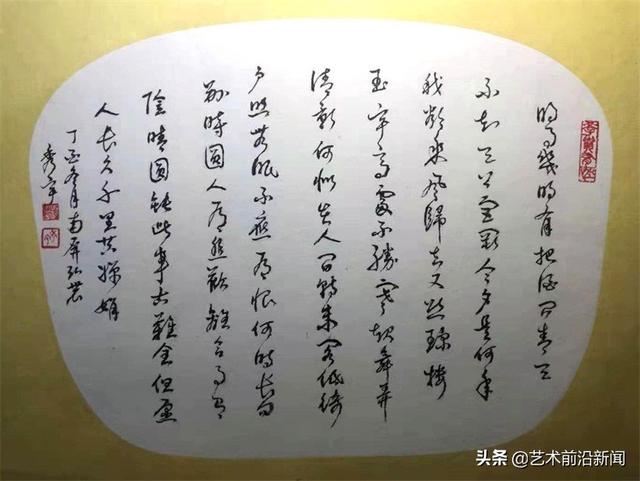 明月幾時有把酒問青天
不知天上宮闕今夕是何年
我欲乘風歸去又恐瓊樓
玉宇高處不勝寒起舞弄
清影何似在人間轉朱閣低綺
戶照無眠不應有恨何時長向
別時圓人有悲歡離合月有
陰晴圓缺此事古難全但願
人長久千里共嬋娟
丁酉冬月南屏
头条 @艺术前沿新闻